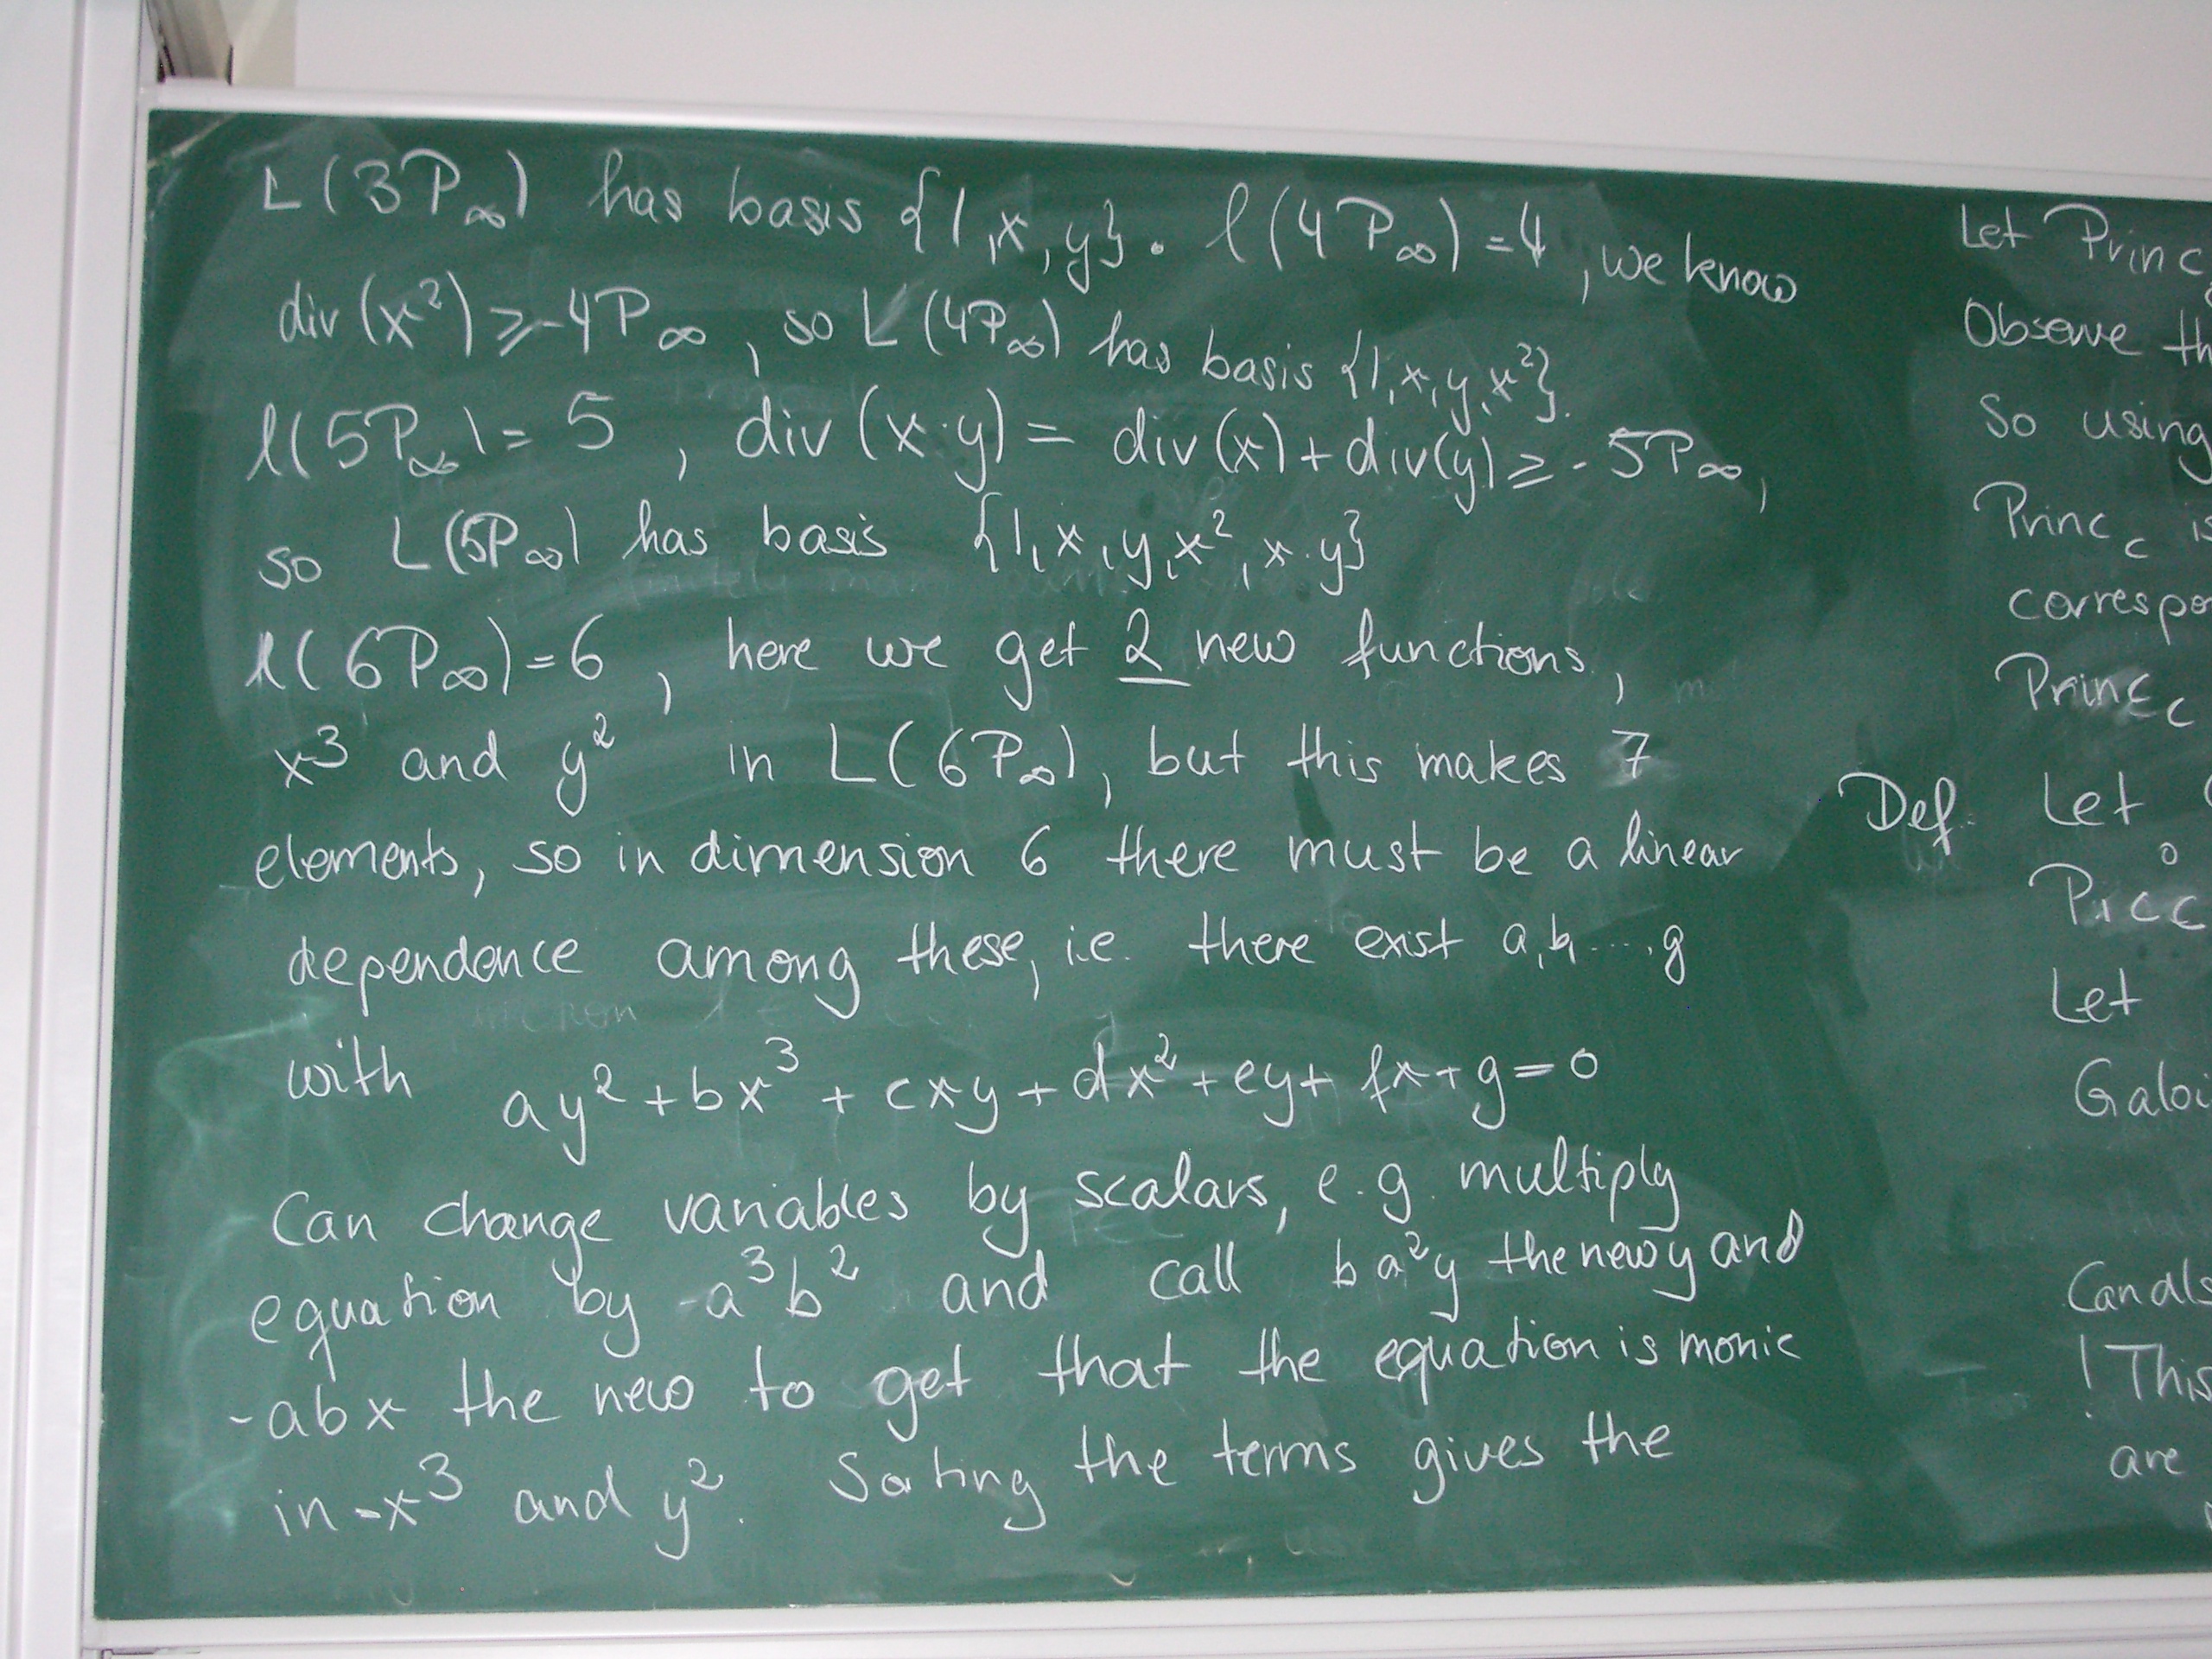 L(3P∞) has basis {1,x,y}. l(4P∞)=4, we know
div(x²)≥-4P∞, so L(4P∞) has basis {1,x,y,x²}.
l(5P∞)=5, div(x·y)= div(x)+div(y)≥-5P∞,
so L(5P∞) has basis {1,x,y,x²,x·y}
l(6P∞)=6, here we get 2 new functions,
x³ and y² in L(6P∞), but this makes 7
elements, so in dimension 6 there must be a linear
dependence among these, i.e. there exist a,b,...,g
with ay²+bx³+cxy+dx²+ey+fx+g=0
Can change variables by scalars, e.g. multiply
equation by a³b² and call ba²y the new y and
-abx the new to get that the equation is monic
in -x³ and y². Sorting the terms gives the
Let Princ
Observe th
So using
Princ_C is
correspo
Princ_C
Def. Let
Pic⁰_C
Let
Galoi
Can als
! This
are